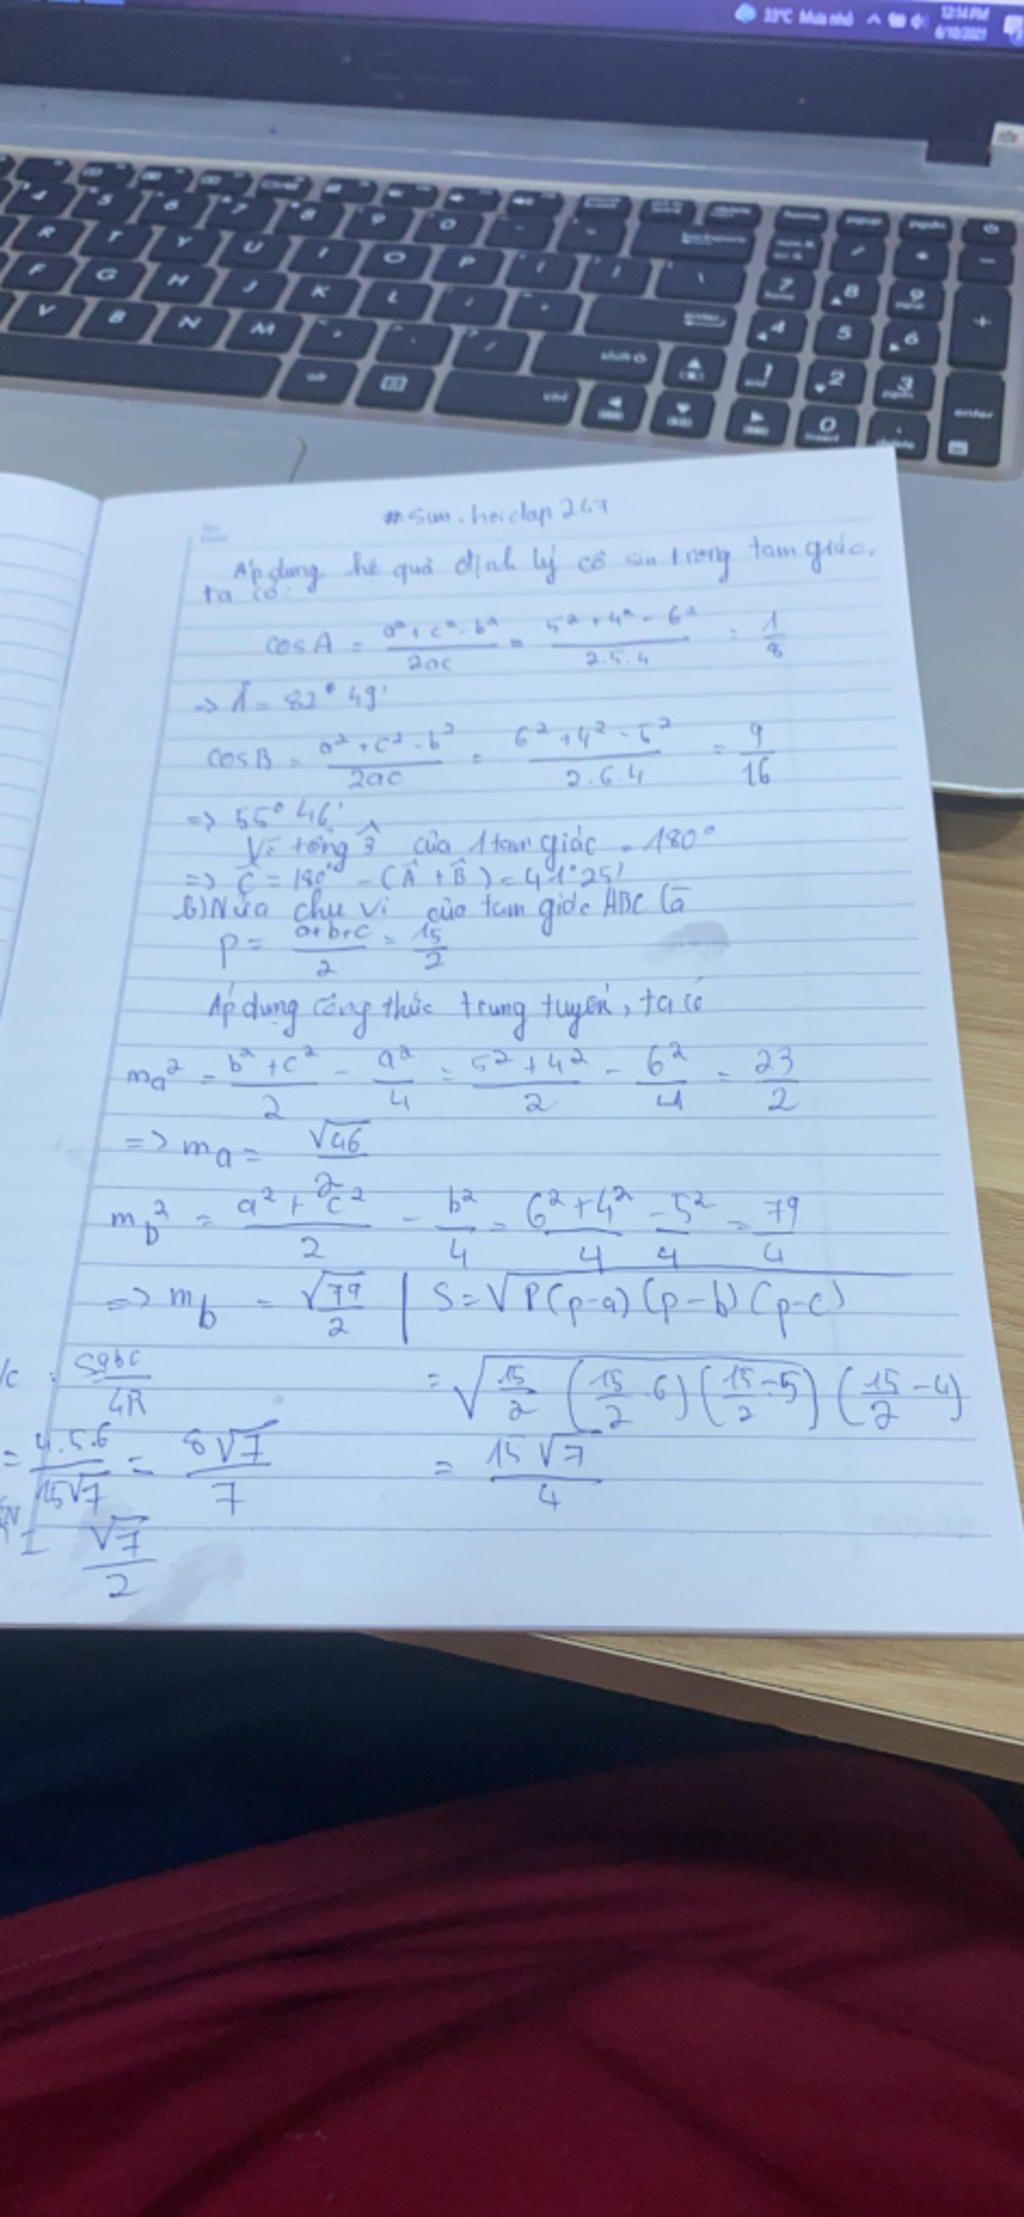 33°C Mưa nhỏ
12:14 PM
6/10/2021
#Sun.hoidap247
Áp dụng hệ quả định lý cô sin trong tam giác,
ta có:
cosA = (a² + c² - b²)/(2ac) = (5² + 4² - 6²)/(2.5.4) = 1/8
=> Â = 82° 49'
cosB = (a² + c² - b²)/(2ac) = (6² + 4² - 5²)/(2.6.4) = 9/16
=> 55° 46'
Vì tổng 3^ của 1 tam giác = 180°
=> Ĉ = 180° - (Â + B̂) = 41° 25'
b) Nửa chu vi của tam giác ABC là
P = (a+b+c)/2 = 15/2
Áp dụng công thức trung tuyến, ta có
ma² = (b² + c²)/2 - a²/4 = (5² + 4²)/2 - 6²/4 = 23/2
=> ma = √46/2
mb² = (a² + c²)/2 - b²/4 = (6² + 4²)/4 - 5²/4 = 79/4
=> mb = √79/2 | S = √P(p-a)(p-b)(p-c)
= √15/2 (15/2 - 6)(15/2 - 5)(15/2 - 4)
= 15√7/4
/c : Sabc/4R
= 4.5.6/15√7 = 8√7/7
√7/2